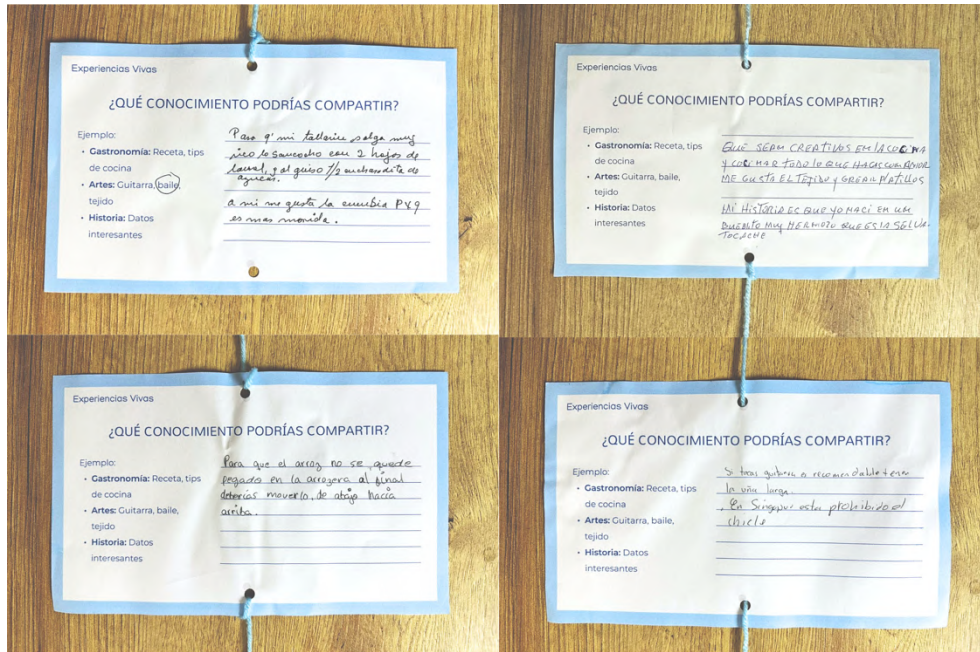 Experiencias Vivas
¿QUÉ CONOCIMIENTO PODRÍAS COMPARTIR?
Ejemplo:
• Gastronomía: Receta, tips
de cocina
• Artes: Guitarra, baile,
tejido
• Historia: Datos
interesantes
Para q' mi tallarin salga muy
rico lo sancocho con 2 hojas de
laurel, y al guiso 1/2 cucharadita de
azucar.
a mi me gusta la cumbia Pxq
es mas movida.
Experiencias Vivas
¿QUÉ CONOCIMIENTO PODRÍAS COMPARTIR?
Ejemplo:
• Gastronomía: Receta, tips
de cocina
• Artes: Guitarra, baile,
tejido
• Historia: Datos
interesantes
QUE SEAN CREATIVOS EN LA COCINA
Y COCINAR TODO LO QUE HAGAS CON AMOR
ME GUSTA EL TEJIDO Y CREAR PLATILLOS
MI HISTORIA ES QUE YO NACI EN UN
PUEBLO MUY HERMOZO QUE ES LA SELVA.
TOCACHE
Experiencias Vivas
¿QUÉ CONOCIMIENTO PODRÍAS COMPARTIR?
Ejemplo:
• Gastronomía: Receta, tips
de cocina
• Artes: Guitarra, baile,
tejido
• Historia: Datos
interesantes
Para que el arroz no se quede
pegado en la arrozera al final
deberías moverlo, de abajo hacia
arriba.
Experiencias Vivas
¿QUÉ CONOCIMIENTO PODRÍAS COMPARTIR?
Ejemplo:
• Gastronomía: Receta, tips
de cocina
• Artes: Guitarra, baile,
tejido
• Historia: Datos
interesantes
Si tocas guitarra es recomendable tener
la uña larga.
En Singapur esta prohibido el
chicle